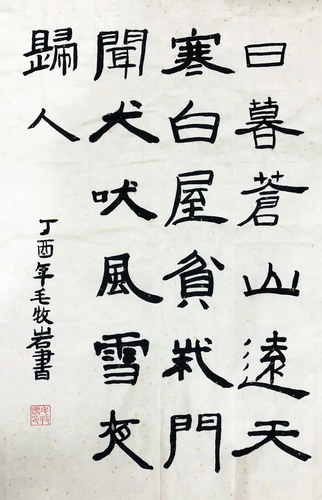 日暮蒼山遠天
寒白屋貧柴門
聞犬吠風雪夜
歸人
丁酉年毛牧岩書